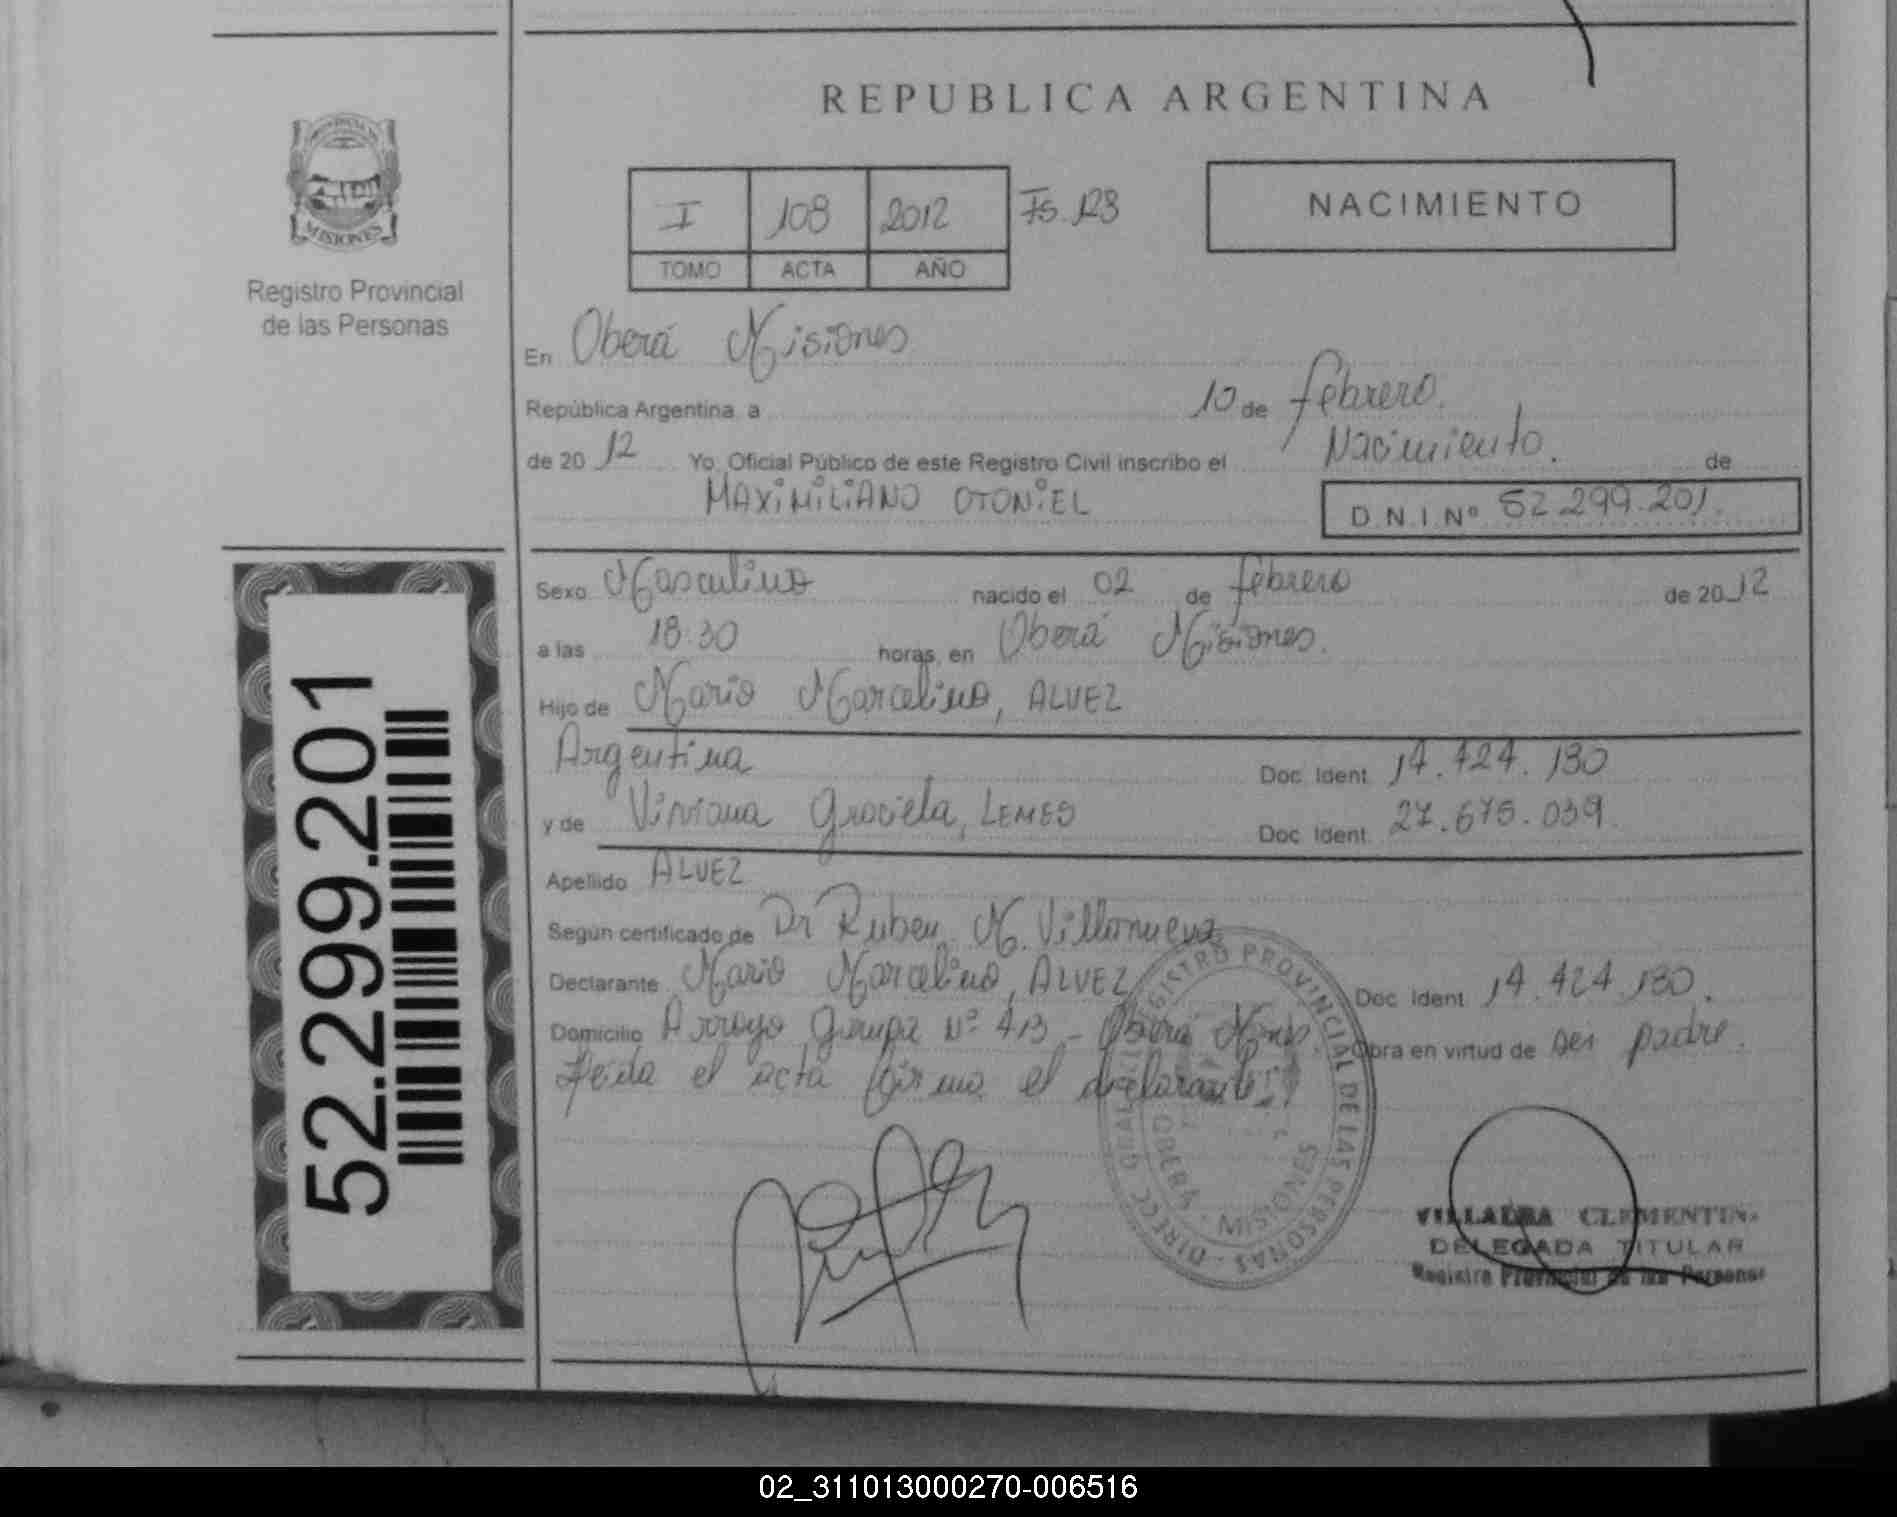 REPUBLICA ARGENTINA
PROVINCIA DE
MISIONES
Registro Provincial
de las Personas
I 108 2012 Fs. 123
TOMO ACTA AÑO
NACIMIENTO
En Oberá Misiones
República Argentina a 10 de febrero.
de 20 12 Yo, Oficial Público de este Registro Civil inscribo el Nacimiento. de
MAXIMILIANO OTONIEL
D.N.I Nº 52.299.201.
Sexo Masculino nacido el 02 de febrero de 20 12
a las 18:30 horas, en Oberá Misiones.
Hijo de Mario Marcelino, ALVEZ
Argentina Doc. Ident. 14.424.130
y de Viviana Graciela, LEMES Doc. Ident. 27.675.039.
Apellido ALVEZ
Según certificado de Dr Ruben M. Villanueva
Declarante Mario Marcelino, ALVEZ Doc. Ident. 14.424.130.
Domicilio Arroyo Nº 413 - Oberá Mnes. Obra en virtud de ser padre.
Leida el acta firma el declarante
DIRECC. GRAL. REGISTRO PROVINCIAL DE LAS PERSONAS
OBERÁ - MISIONES
VILLALBA CLEMENTIN
DELEGADA TITULAR
Registro Provincial de las Personas
52.299.201
02_311013000270-006516